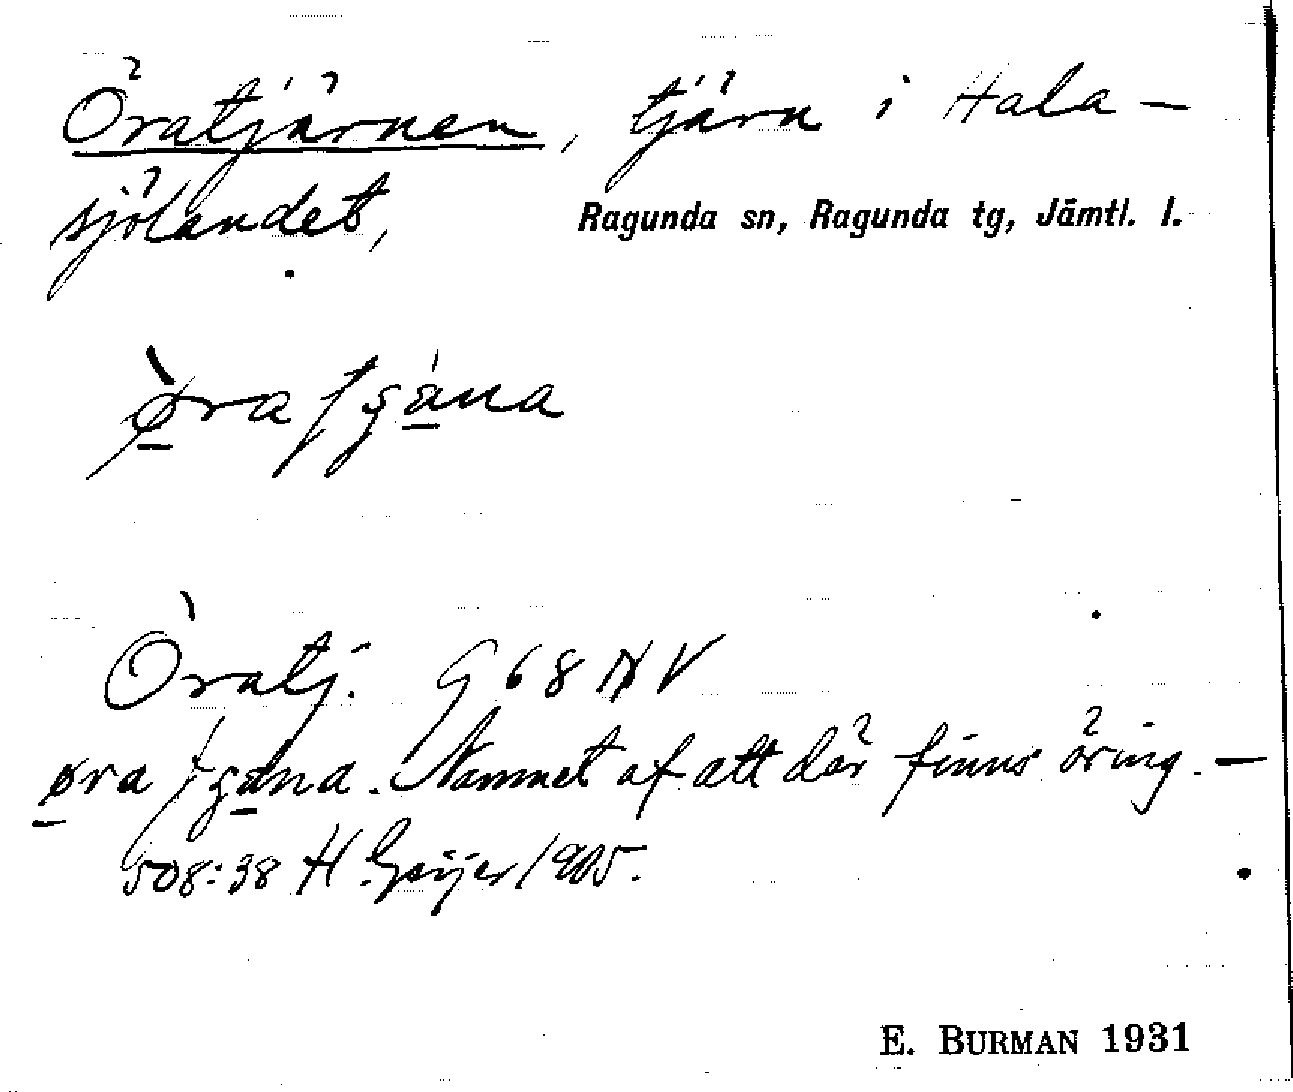 Öratjärnen, tjärn i Hala-
sjölandet, Ragunda sn, Ragunda tg, Jämtl. l.
ø̱̀ra ʃʂa̱na
Öratj. G 68 NV
ø̱ra ʃʂa̱na. Namnet af att där finns öring. –
508:38 H. Geijer 1905.
E. BURMAN 1931